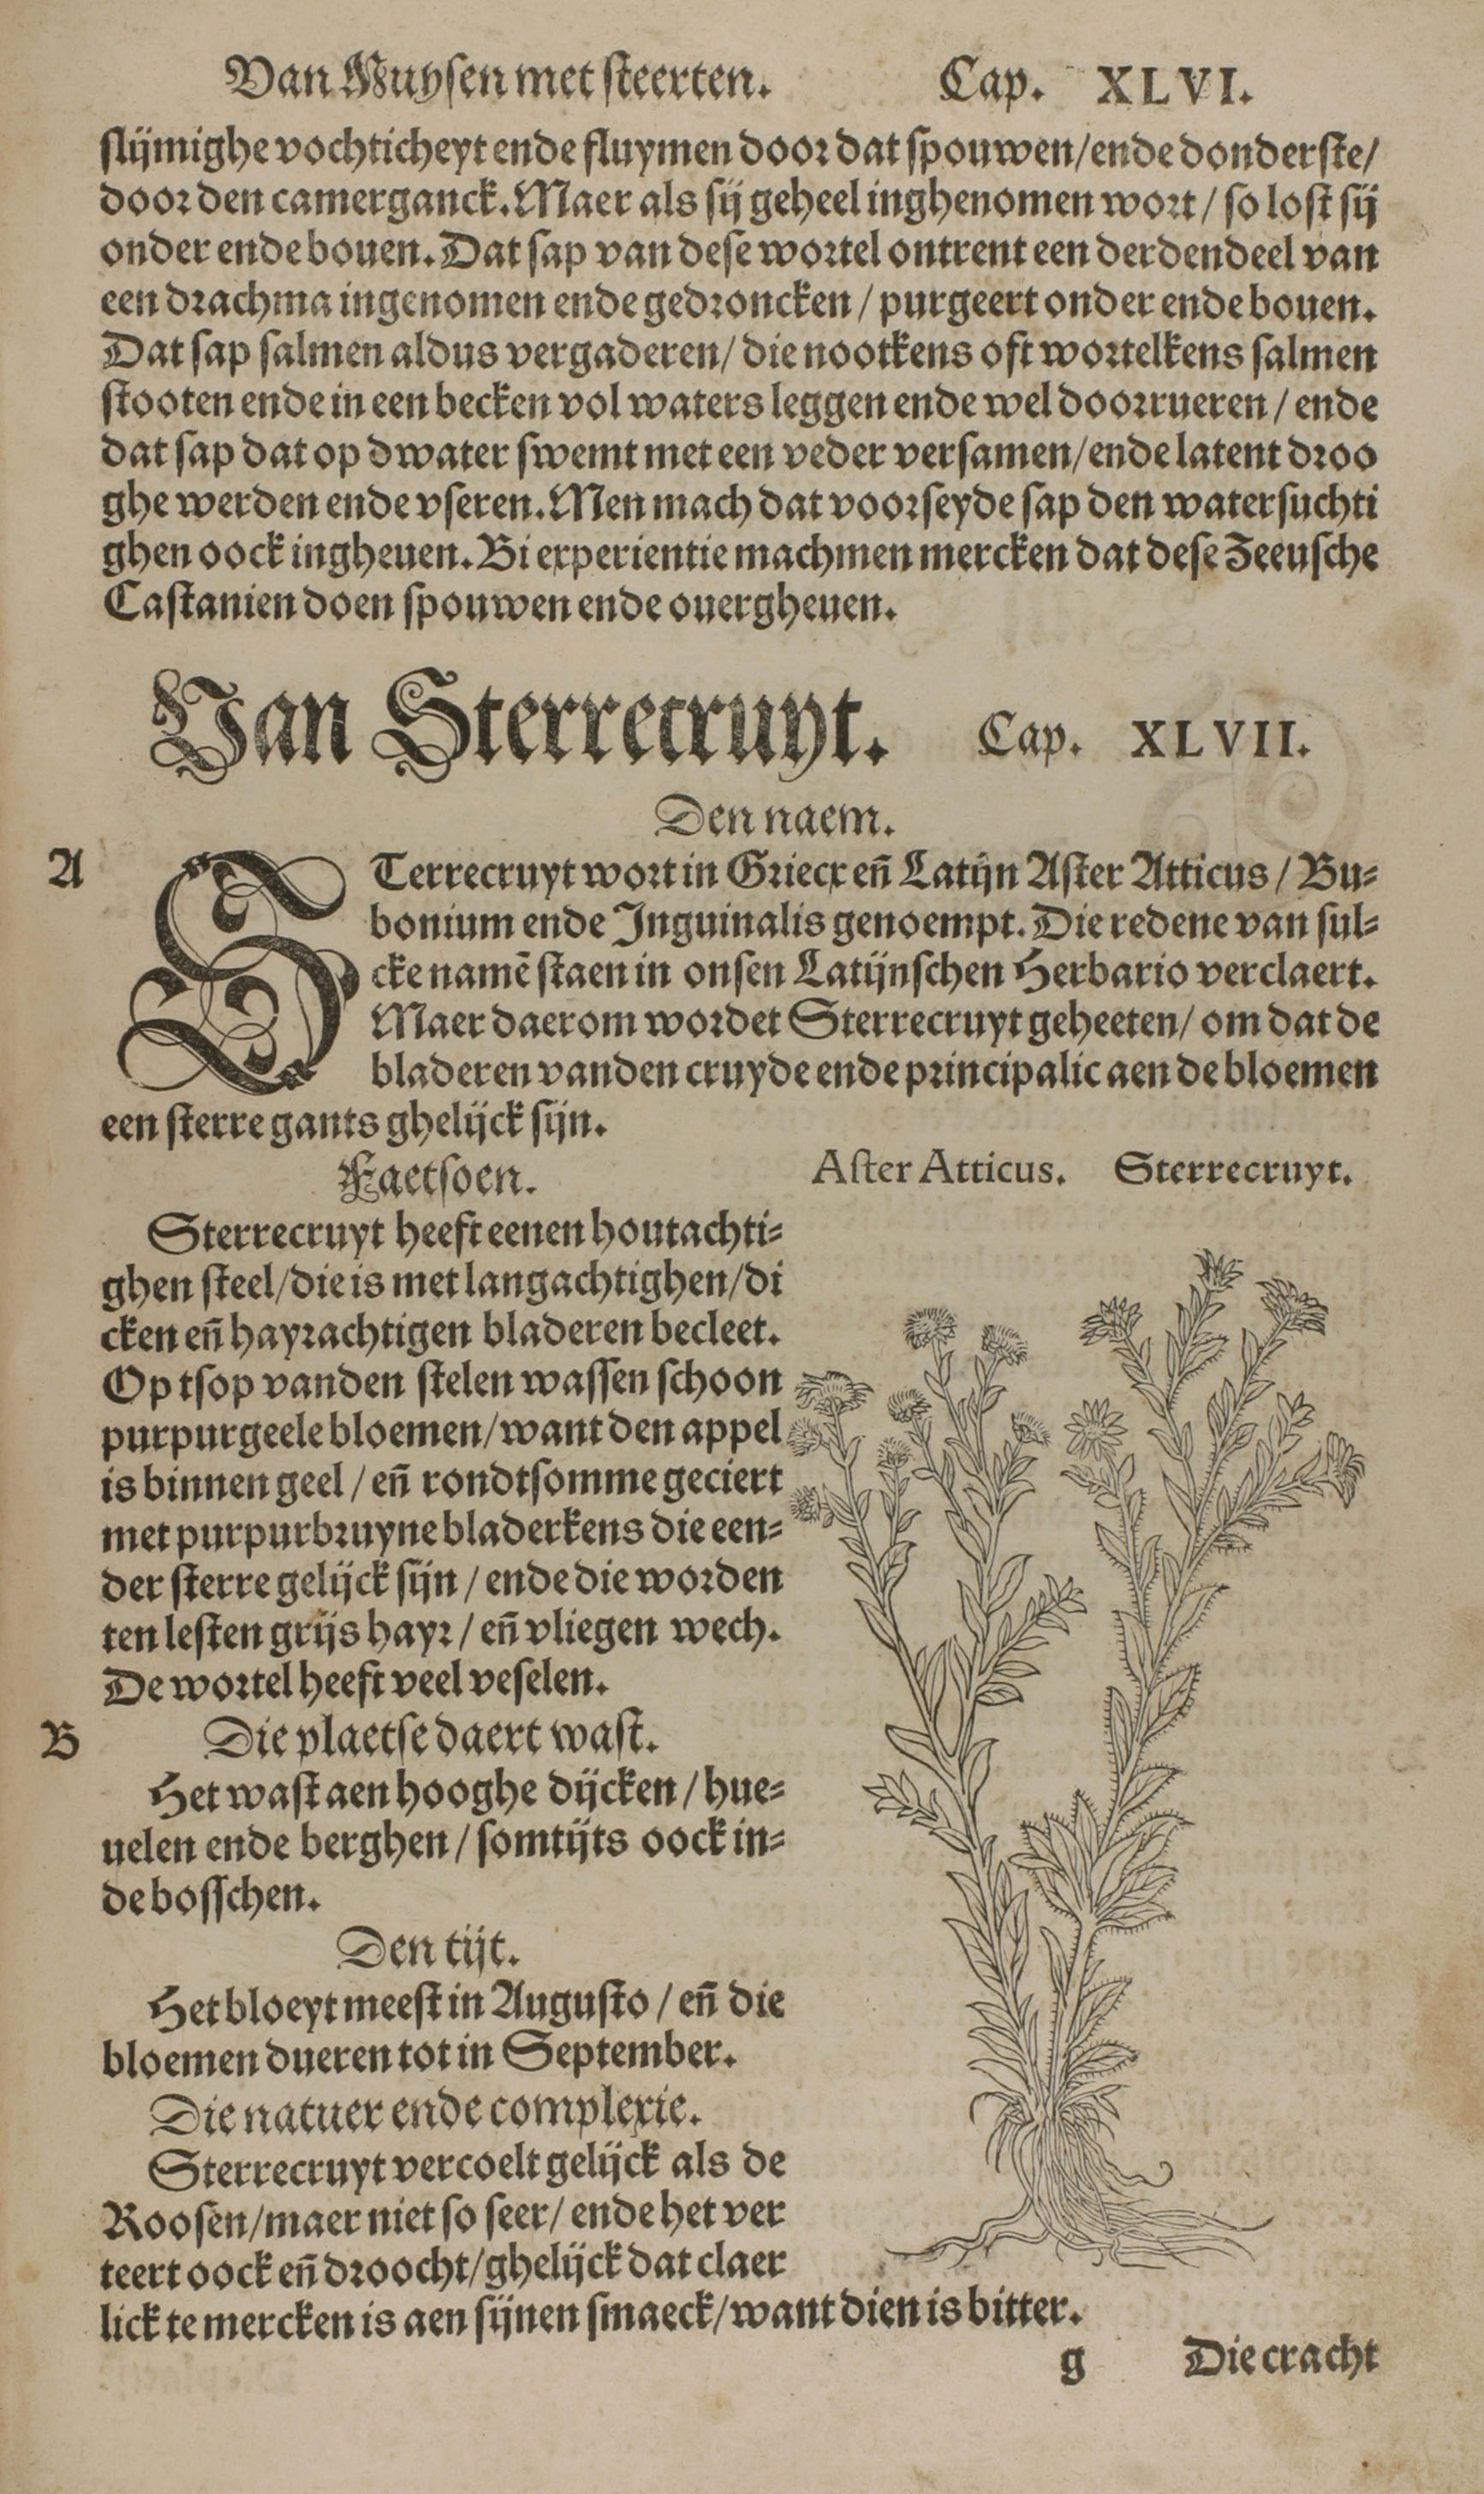 Van Muysen met steerten. Cap. XLVI.
slijmighe vochticheyt ende fluymen door dat spouwen/ende donderste/
door den camerganck. Maer als sij geheel inghenomen wort / so lost sij
onder ende bouen. Dat sap van dese wortel ontrent een derdendeel van
een drachma ingenomen ende gedroncken / purgeert onder ende bouen.
Dat sap salmen aldus vergaderen/ die nootkens oft wortelkens salmen
stooten ende in een becken vol waters leggen ende wel doorrueren / ende
dat sap dat op dwater swemt met een veder versamen/ende latent droo
ghe werden ende vseren. Men mach dat voorseyde sap den watersuchti
ghen oock ingheuen. Bi experientie machmen mercken dat dese Zeeusche
Castanien doen spouwen ende ouergheuen.
Van Sterrecruyt. Cap. XLVII.
Den naem.
A
STerrecruyt wort in Griecx eñ Latijn Aster Atticus / Bu-
bonium ende Inguinalis genoempt. Die redene van sul-
cke namē staen in onsen Latijnschen Herbario verclaert.
Maer daerom wordet Sterrecruyt geheeten/ om dat de
bladeren vanden cruyde ende principalic aen de bloemen
een sterre gants ghelijck sijn.
Faetsoen.
Aster Atticus. Sterrecruyt.
Sterrecruyt heeft eenen houtachti-
ghen steel/die is met langachtighen/di
cken eñ hayrachtigen bladeren becleet.
Op tsop vanden stelen wassen schoon
purpurgeele bloemen/want den appel
is binnen geel / eñ rondtsomme geciert
met purpurbruyne bladerkens die een-
der sterre gelijck sijn / ende die worden
ten lesten grijs hayr / eñ vliegen wech.
De wortel heeft veel veselen.
B
Die plaetse daert wast.
Het wast aen hooghe dijcken / hue-
uelen ende berghen / somtijts oock in-
de bosschen.
Den tijt.
Het bloeyt meest in Augusto / eñ die
bloemen dueren tot in September.
Die natuer ende complexie.
Sterrecruyt vercoelt gelijck als de
Roosen/maer niet so seer/ ende het ver
teert oock eñ droocht/ghelijck dat claer
lick te mercken is aen sijnen smaeck/want dien is bitter.
g Die cracht